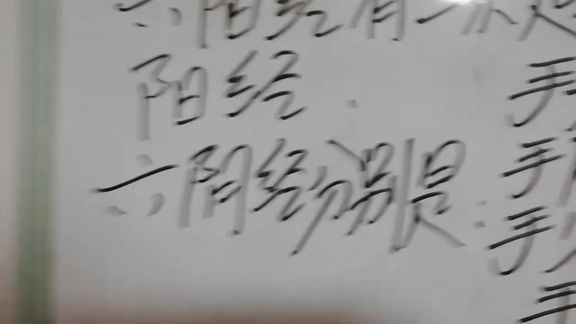 六阳经有一
阳经.
手
六阴经分别是:
手
手
手